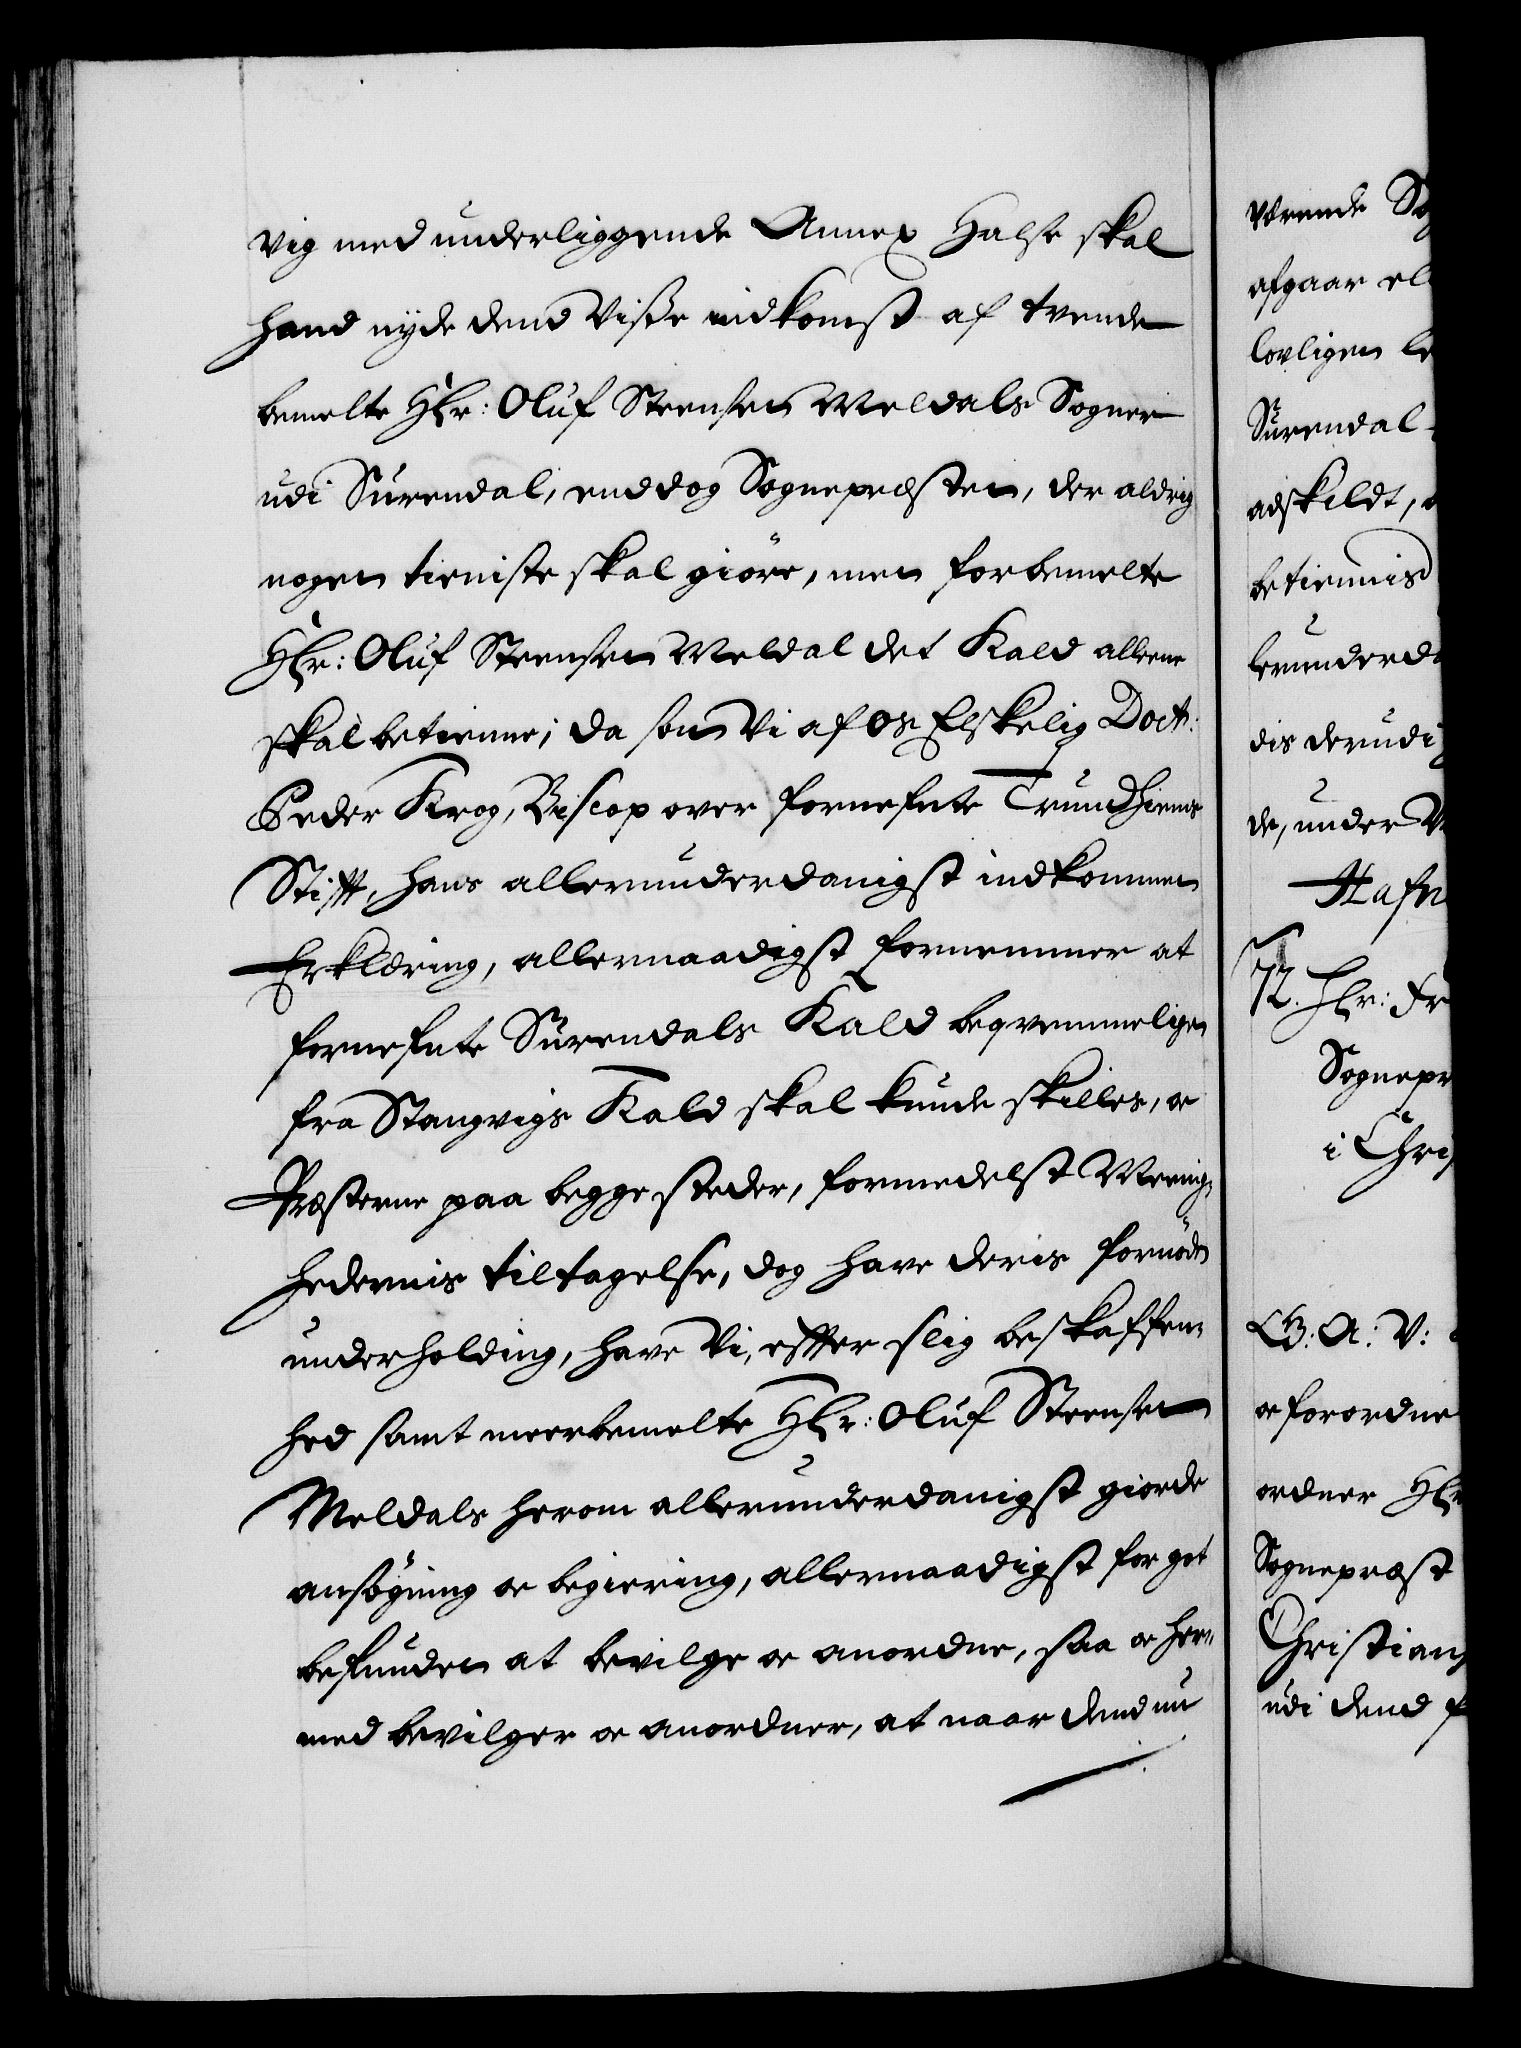 vig med underliggende Annex Halse skal
hand nyde dend visse indkomst af tvende
bemelte Hr: Oluf Steensen Meldals Sogner
udi Surendal, enddog Sognepresten, der aldrig
nogen tieniste skal giöre, men forbemelte
Hr: Oluf Steensen Meldal det Kald alleene
skal betienne; da som Vi af Os Elskelig Doct:
Peder Krog, Biscop over fornefnte Trundhiems
Stift, hans allerunderdanigst indkommen
Erklæring, allernaadigst fornemmer at
fornefnte Surendals Kald beqvemmeligen
fra Stangvigs Kald skal kunde skilles, oc
Præsterne paa begge steder, formedelst Meenig-
hedernis tiltagelse, dog have deris fornödn
underholding, have Vi, effter slig beskaffen-
hed samt meerbemelte Hr: Oluf Steensen
Meldals herom allerunderdanigst giorde
ansögning oc begiering, allernaadigst for got
befunden at bevilge oc anordne, saa oc her-
med bevilger oc anordner, at naar dend nu
værende Sog
afgaar el
lovligen le
Surendal
adskildt,
betiennis
lerunderda
dis derudi
de, under V
Hafn
72. Hr: Fr
Sognepr
i Chris
C5: A: V:
oc forordne
ordner Hr
Sognepræst
Christians
udi dend f